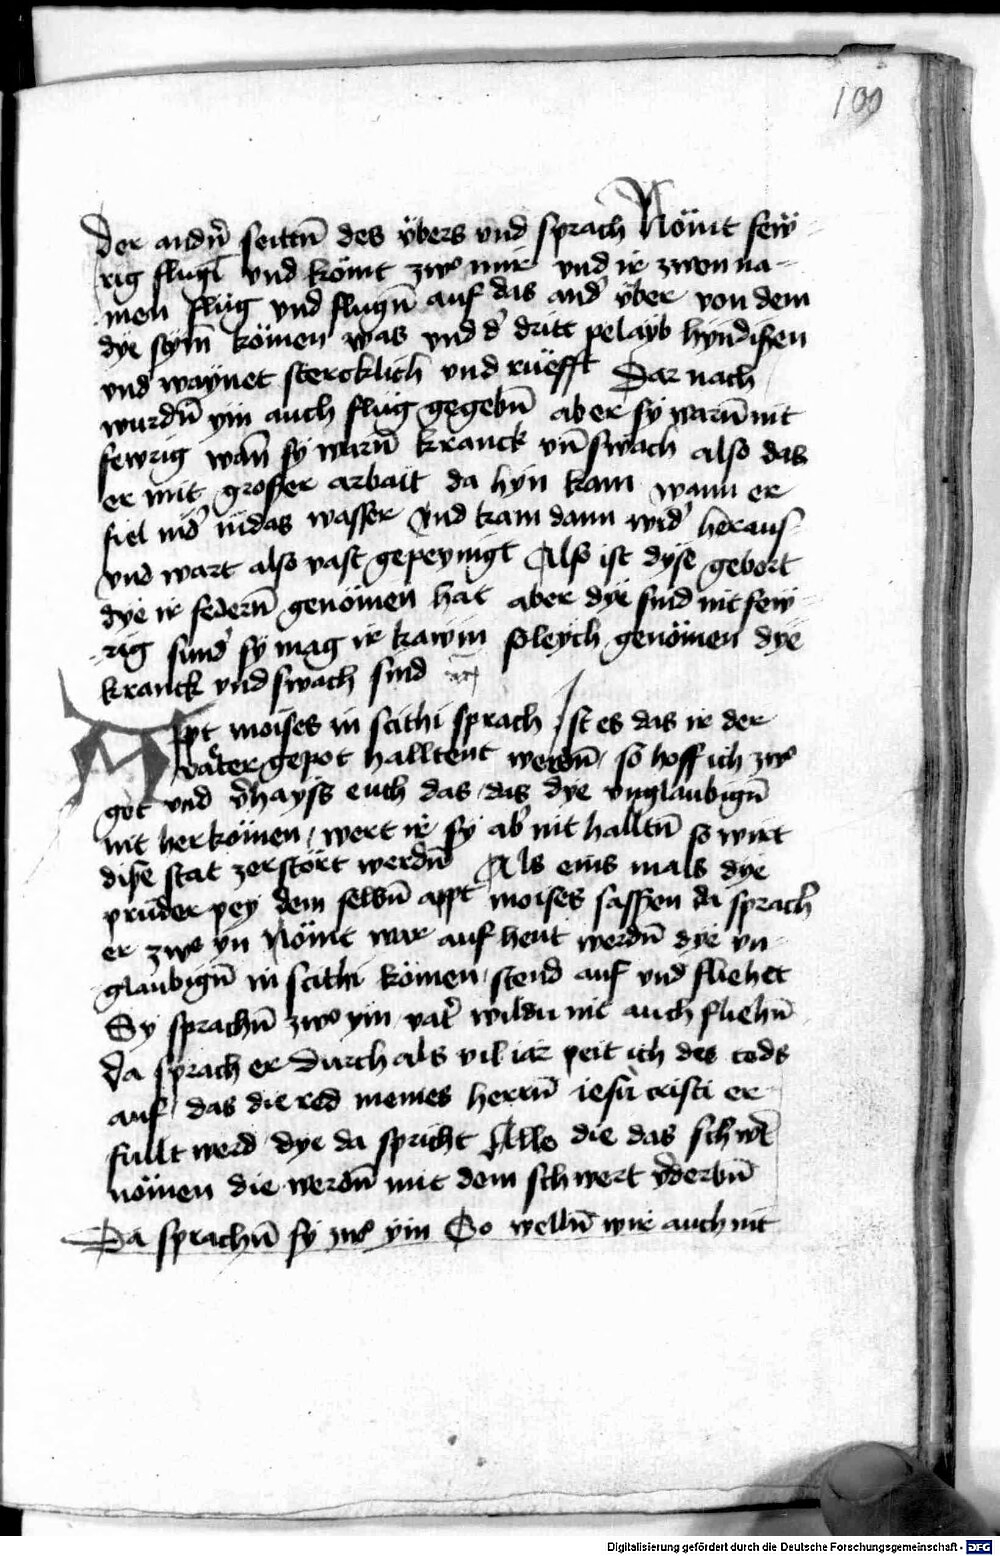 100
der andn̄ seittn̄ des ÿbers vnd sprach Nömt few̋
rig flugl vnd kömt zwᵒ mir vnd ir zwen na-
men flüg vnd flugn̄ auf das and̓ ÿber von dem
dÿe stÿm̄ kömen was vnd d̓ dritt pelayb hyndisen
vnd waÿnet stercklich vnd rüefft Dar nach
wurdn̄ ym auch flüg gegebn̄ aber sÿ warn̄ nit
fewrig wan̄ sÿ warn̄ kranck vn̄ swach also das
er mit grosser arbait da hyn kam wann er
fiel nid̓ in das wasser vnd kam dann wid̓ heraus
vnd wart also vast gepeynigt Also ist dÿse gebort
dÿe ir federn̄ genömen hat aber dÿe sind nit few-
rig sund̓ sÿ mag ir kawm soleych genömen dÿe
kranck vnd swach sind
Appt moises in scithi sprach Ist es das ir der
väter gepot halltent werdn̄ so hoff ich zwᵒ
got vnd v̓hayss euch das das dye vnglaubign̄
nit her kömen wert ir sÿ ab̓ nit halltn̄ so wirt
dise stat zerstört werdn̄ Als eins mals dye
prüder pey dem selbn̄ appt moises sassen da sprach
er zwᵒ yn Nömt war auf heut werdn̄ dye vn-
glaubign̄ in scithi kömen stend auf vnd fliehet
Sy sprachn̄ zwᵒ ym vat̓ wildu nit auch fliehn̄
da sprach er Durch als vil iar peit ich des tods
auf das die red meines herrn̄ iesu cristi er
füllt werd dye da spricht Alle die das schw̓t
nömen die werdn̄ mit dem schwert v̓derbn̄
Da sprachn̄ sÿ zwᵒ ym So welln̄ wir auch nit
Digitalisierung gefördert durch die Deutsche Forschungsgemeinschaft - DFG